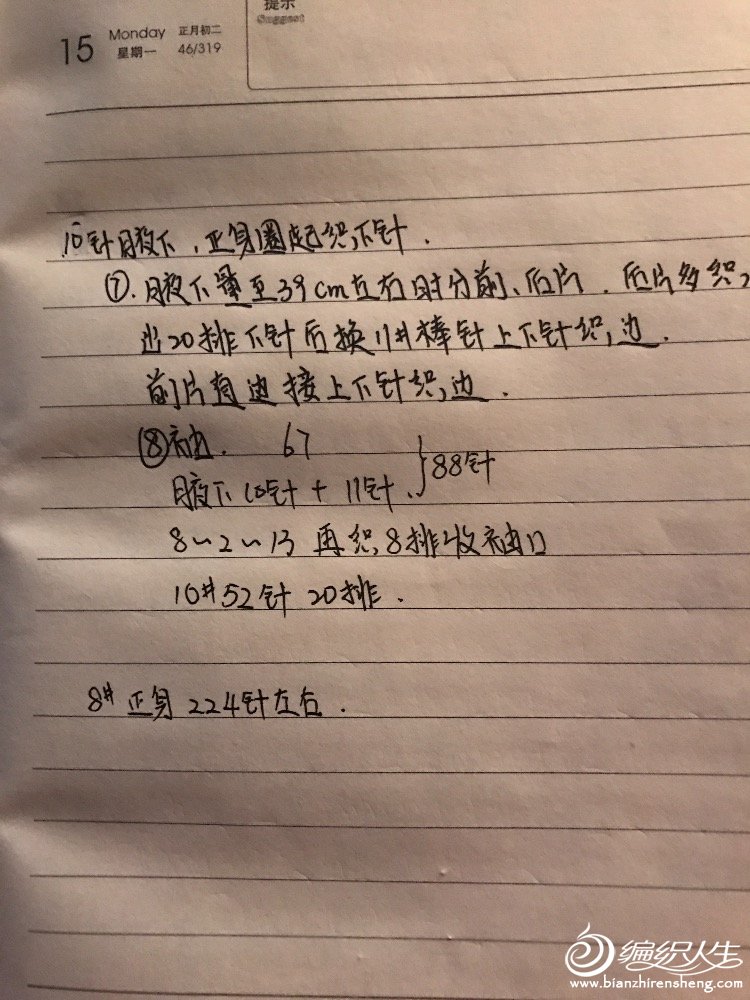 提示
Suggest
15 Monday 正月初二
星期一 46/319
10针腋下,正身圈起织下针.
⑦.腋下量至39cm左右时分前、后片.后片多织
出20排下针后换11#棒针上下针织边.
前片直边接上下针织边.
⑧袖. 67
腋下10针+11针. }88针
8~2~13 再织8排收袖口
10#52针 20排.
8# 正身 224针左右.
编织人生
www.bianzhirensheng.com